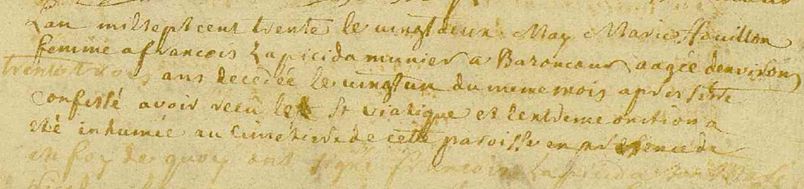 Lan mil sept cent trente le vingt deux May Marie Houillon
femme a francois Lapicida munier a Baroncour aagée denviron
trente trois ans decedée le vingt un du meme mois apres setre
confessé avoir recu le St viatique et lextreme onction a
eté inhumée au Cimetiere de cette paroisse en presence de
en foy de quoy ont signé francois Lapicida